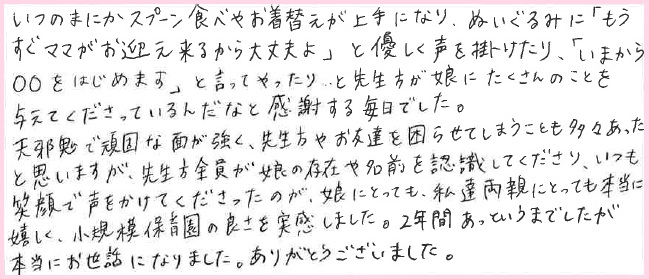 いつのまにかスプーン食べやお着替えが上手になり、ぬいぐるみに「もう
すぐママがお迎え来るから大丈夫よ」と優しく声を掛けたり、「いまから
〇〇をはじめます」と言ってやったり…と先生方が娘にたくさんのことを
与えてくださっているんだなと感謝する毎日でした。
天邪鬼で頑固な面が強く、先生方やお友達を困らせてしまうことも多々あった
と思いますが、先生方全員が娘の存在や名前を認識してくださり、いつも
笑顔で声をかけてくださったのが、娘にとっても、私達両親にとっても本当に
嬉しく、小規模保育園の良さを実感しました。2年間あっというまでしたが
本当にお世話になりました。ありがとうございました。